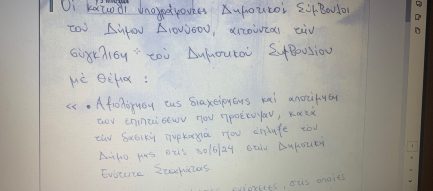 Οι κάτωθι υπογράφοντες Δημοτικοί Σύμβουλοι
του Δήμου Διονύσου, αιτούνται την
σύγκλιση του Δημοτικού Συμβουλίου
με θέμα :
« • Αξιολόγηση της διαχείρησης και αποτίμηση
των επιπτώσεων που προέκυψαν, κατά
την δασική πυρκαγιά που έπληξε τον
Δήμο μας στις 30/6/24 στην Δημοτική
Ενότητα Σταμάτας
στις οποίες